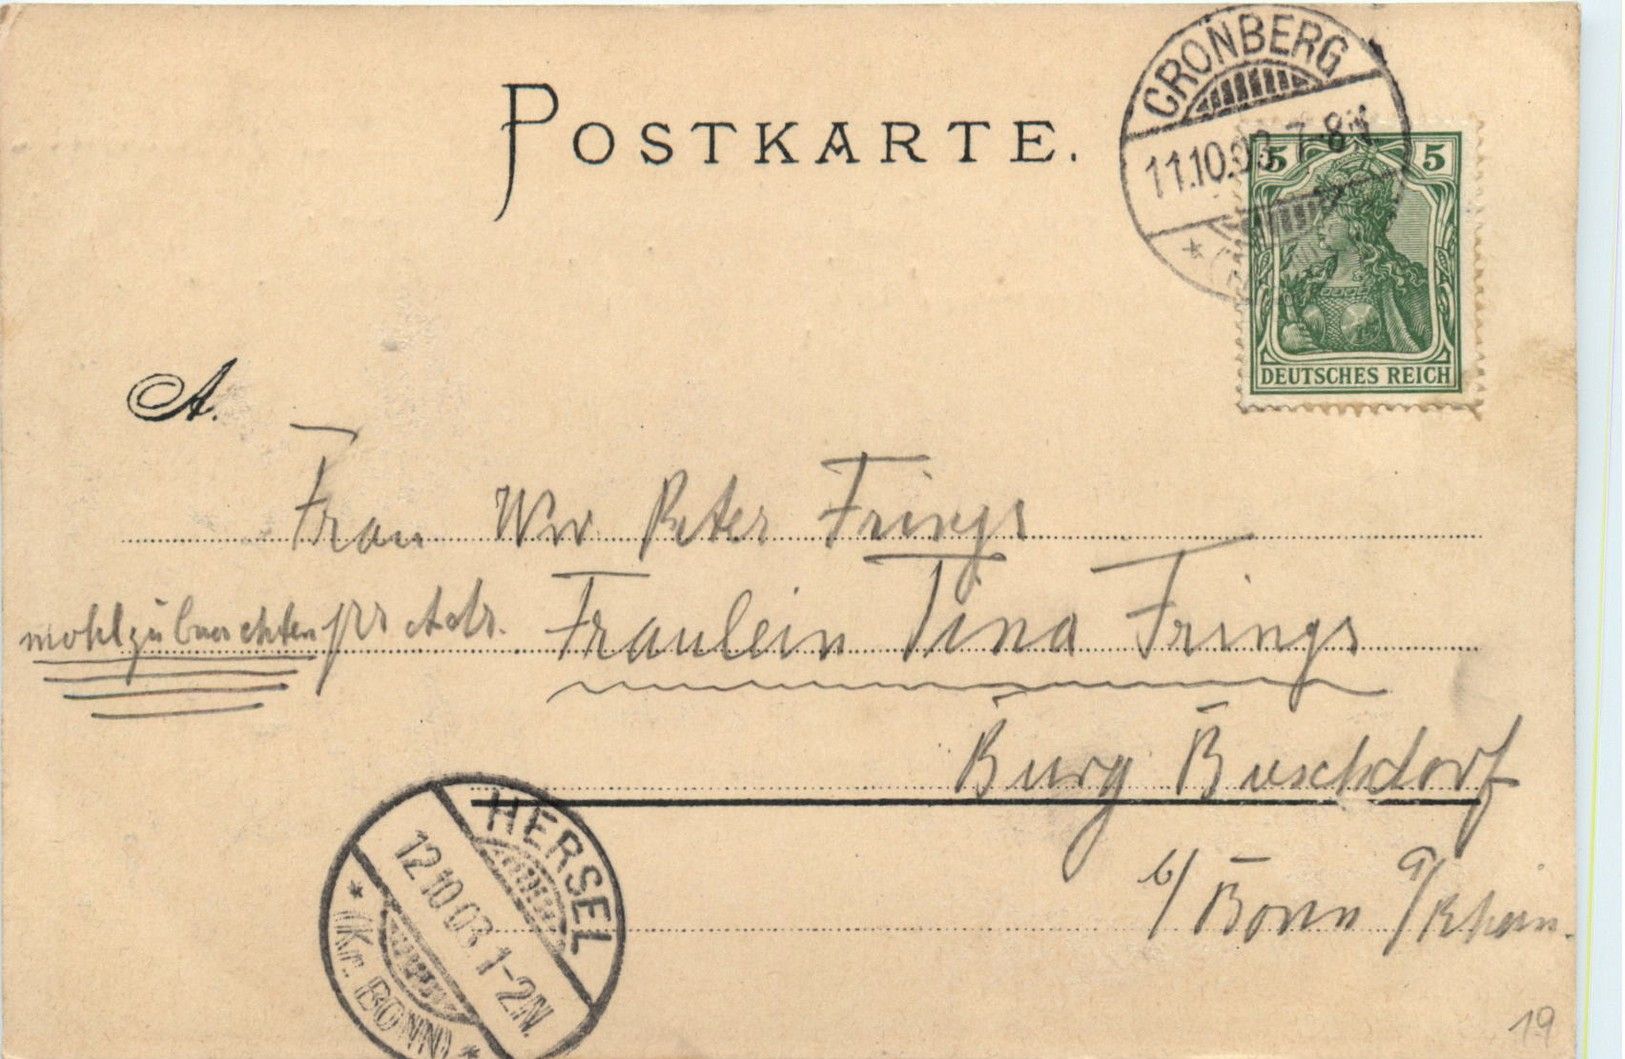 POSTKARTE.
CRONBERG
11.10.03.7-8N
5 5
DEUTSCHES REICH
A.
Frau Ww Peter Frings
wohlzubeachten pr Adr. Fräulein Tina Frings
Burg Buschdorf
b/ Bonn a/Rhein.
HERSEL
12.10.03.1-2N.
(Kr. BONN)
19